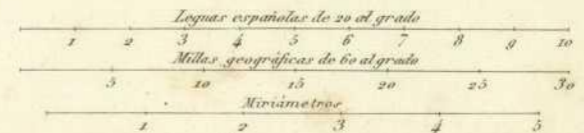 Leguas españolas de 20 al grado
1 2 3 4 5 6 7 8 9 10
Millas geográficas de 60 al grado
5 10 15 20 25 30
Miriámetros
1 2 3 4 5